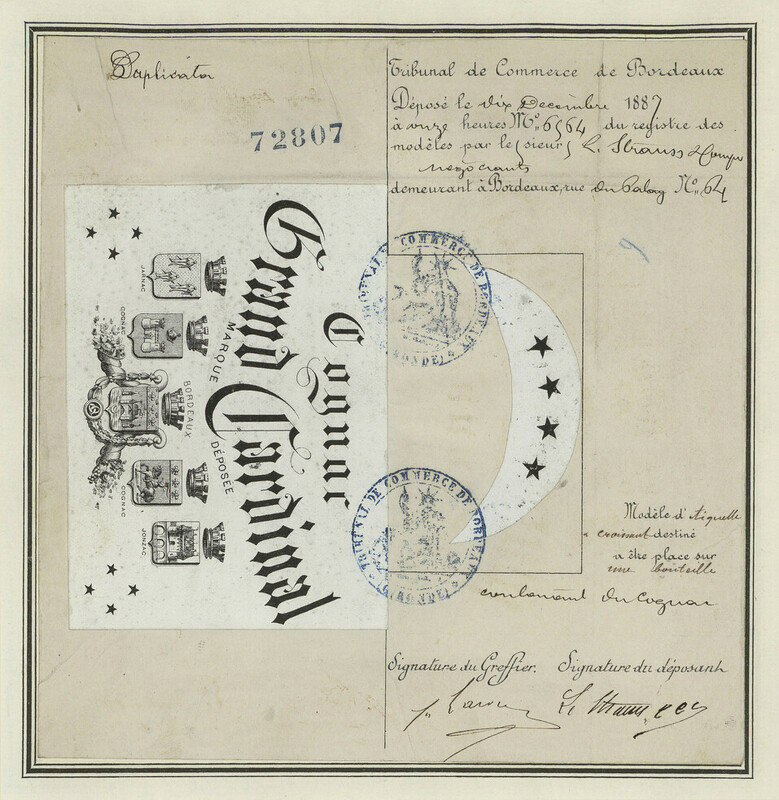 Duplicata
72807
Tribunal de Commerce de Bordeaux
Déposé le dix Decembre 1887
à onze heures No. 6564 du registre des
modèles par le sieur L. Strauss &
négociants
demeurant à Bordeaux, rue du No. 64
Cognac
Grand Cardinal
MARQUE DÉPOSÉE
JARNAC
COGNAC
BORDEAUX
COGNAC
JONZAC
TRIBUNAL DE COMMERCE DE BORDEAUX
(GIRONDE)
TRIBUNAL DE COMMERCE DE BORDEAUX
(GIRONDE)
Modèle d'étiquette
croissant destiné
a être place sur
une bouteille
contenant du Cognac
Signature du Greffier. Signature du déposant
L. Strauss